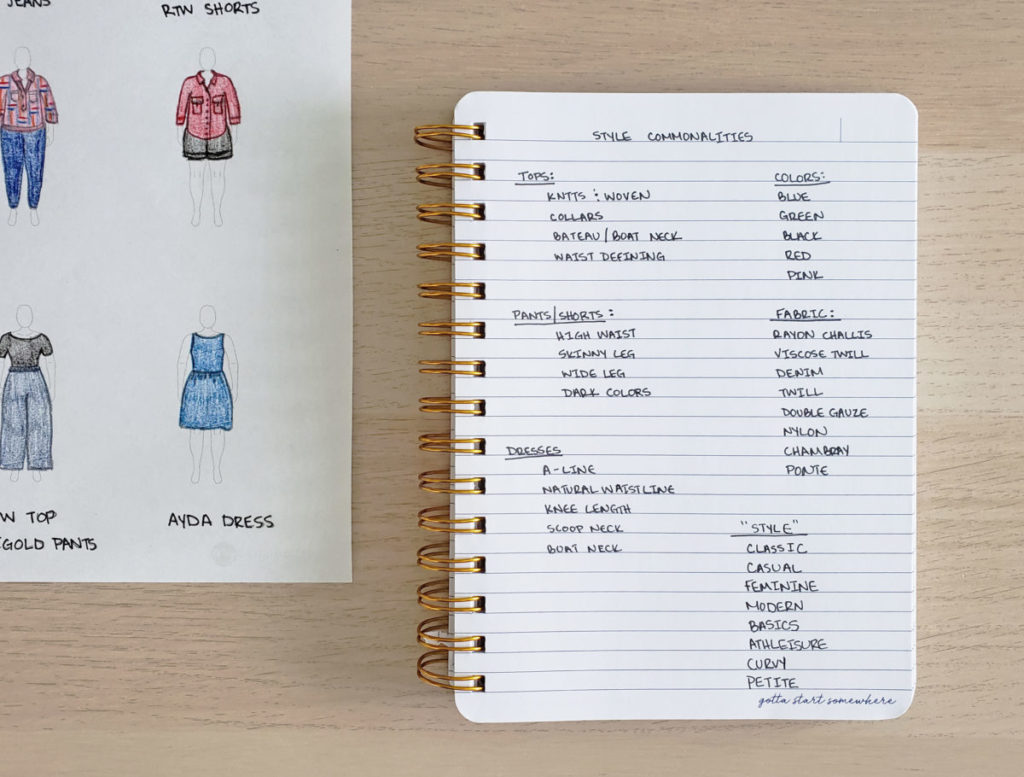 JEANS
RTW SHORTS
W TOP
GOLD PANTS
AYDA DRESS
STYLE COMMONALITIES
TOPS:
KNITS : WOVEN
COLLARS
BATEAU/BOAT NECK
WAIST DEFINING
PANTS/SHORTS:
HIGH WAIST
SKINNY LEG
WIDE LEG
DARK COLORS
DRESSES
A-LINE
NATURAL WAISTLINE
KNEE LENGTH
SCOOP NECK
BOAT NECK
COLORS:
BLUE
GREEN
BLACK
RED
PINK
FABRIC:
RAYON CHALLIS
VISCOSE TWILL
DENIM
TWILL
DOUBLE GAUZE
NYLON
CHAMBRAY
PONTE
"STYLE"
CLASSIC
CASUAL
FEMININE
MODERN
BASICS
ATHLEISURE
CURVY
PETITE
gotta start somewhere